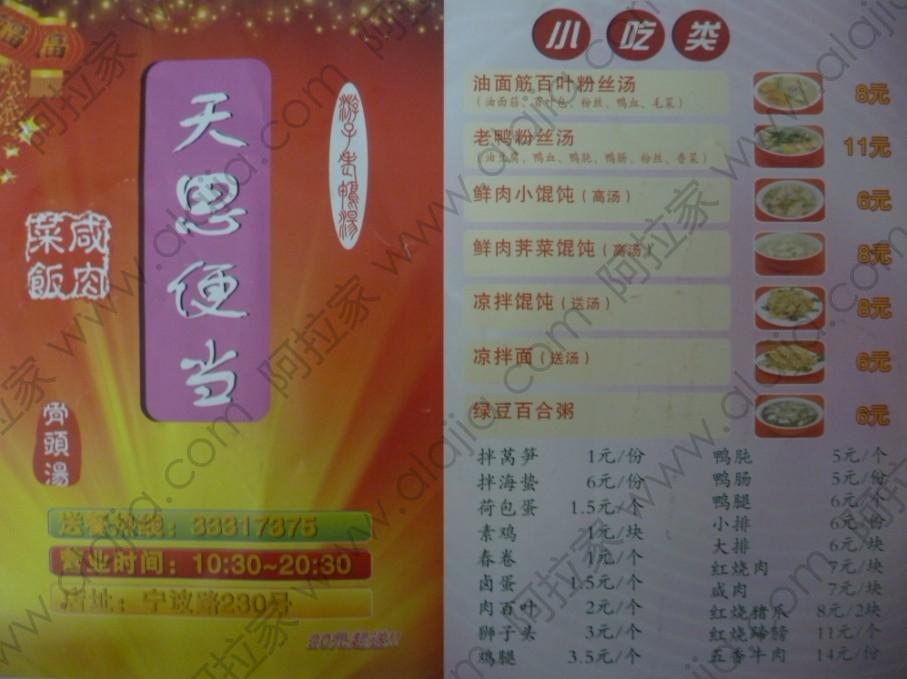 福
天恩便当
游子老鸭湯
咸肉菜飯
骨頭湯
送餐热线：33317375
营业时间：10:30~20:30
店址：宁波路230号
20元起送!!
小吃类
油面筋百叶粉丝汤 8元
（油面筋、百叶包、粉丝、鸭血、毛菜）
老鸭粉丝汤 11元
（油豆腐、鸭血、鸭肫、鸭肠、粉丝、香菜）
鲜肉小馄饨（高汤） 6元
鲜肉荠菜馄饨（高汤） 8元
凉拌馄饨（送汤） 8元
凉拌面（送汤） 6元
绿豆百合粥 6元
拌莴笋 1元/份
拌海蛰 6元/份
荷包蛋 1.5元/个
素鸡 1元/块
春卷 1元/个
卤蛋 1.5元/个
肉百叶 2元/个
狮子头 3元/个
鸡腿 3.5元/个
鸭肫 5元/个
鸭肠 5元/份
鸭腿 6元/个
小排 6元/份
大排 6元/块
红烧肉 7元/块
咸肉 7元/块
红烧猪爪 8元/2块
红烧蹄髈 11元/个
五香牛肉 14元/份
阿拉家 www.alajia.com